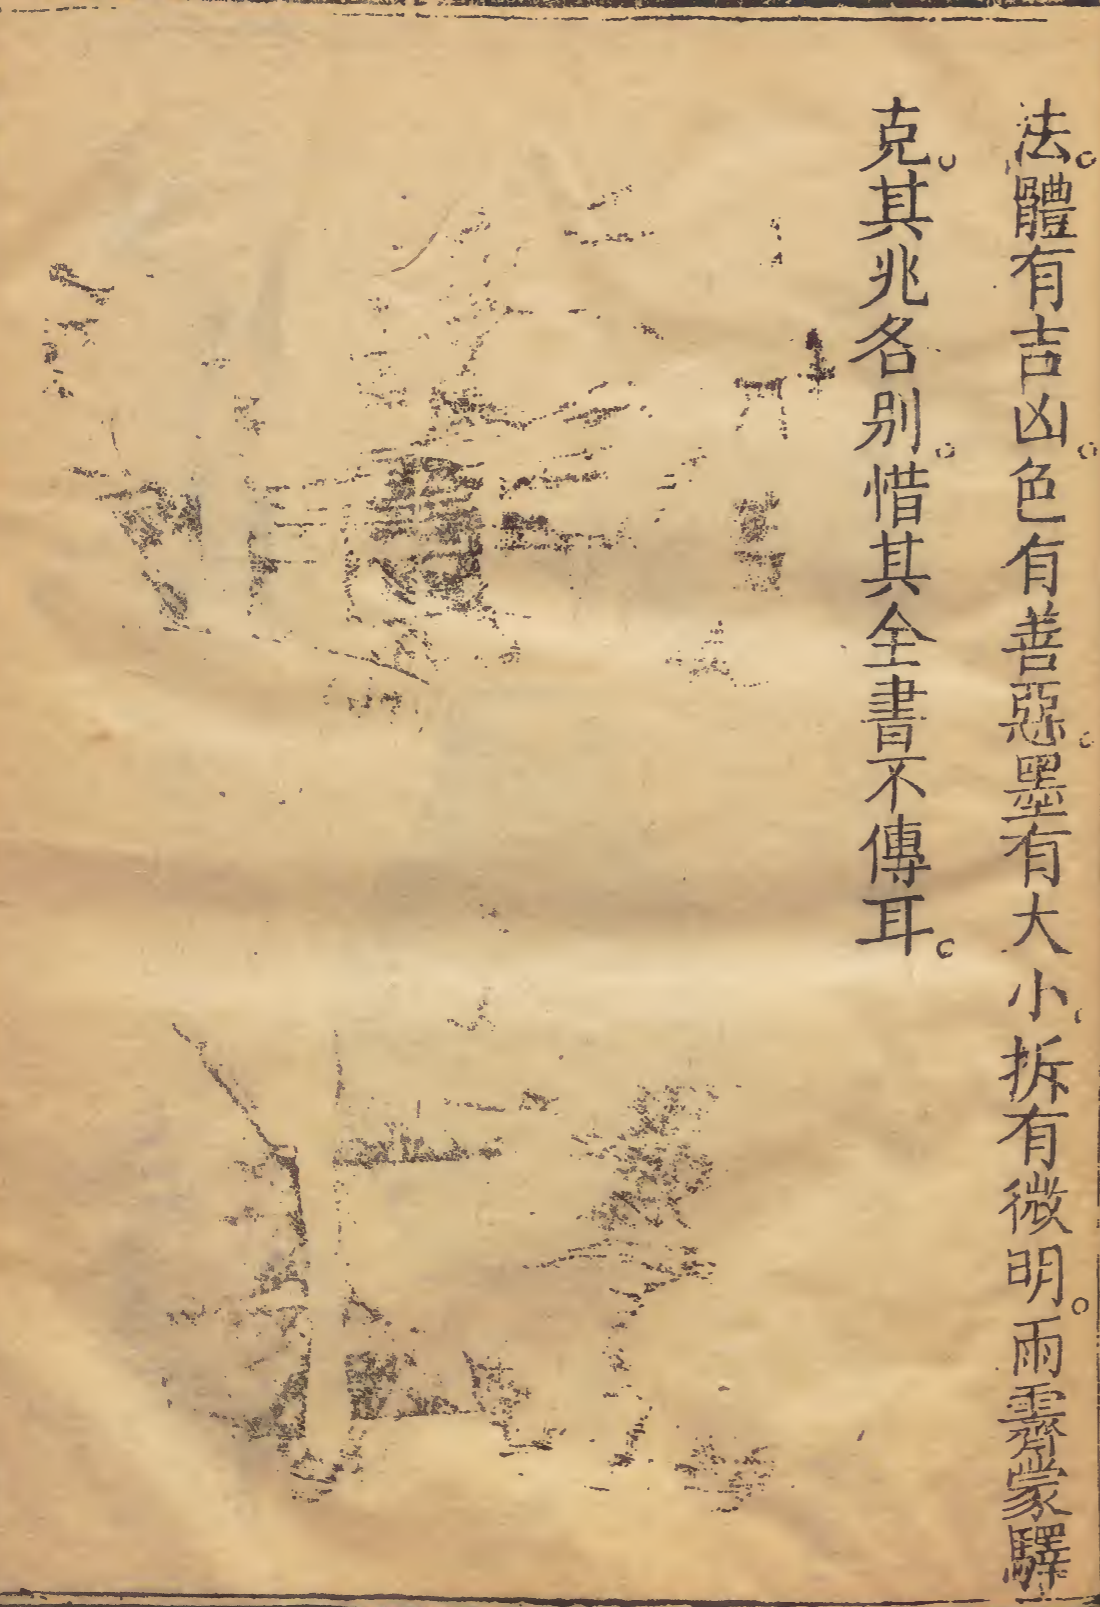 法。體有吉凶。色有善惡。墨有大小。拆有微明。雨霽蒙驛
克。其兆各別。惜其全書不傳耳。